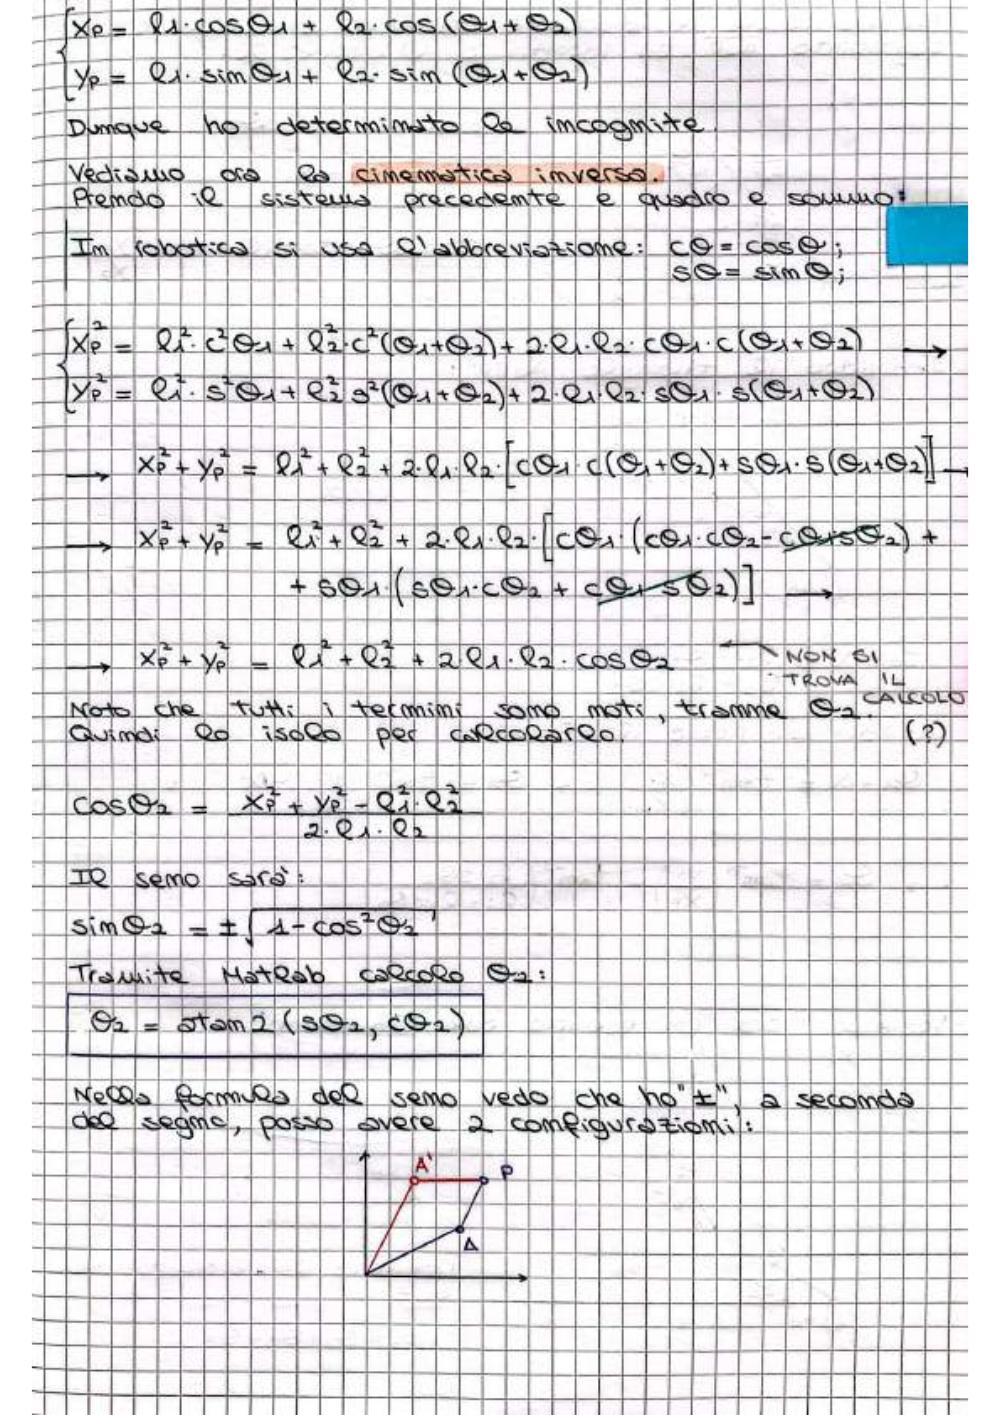 xp = l1·cosθ1 + l2·cos(θ1+θ2)
yp = l1·sinθ1 + l2·sin(θ1+θ2)
Dunque ho determinato le incognite.
Vediamo ora la cinematica inversa.
Prendo il sistema precedente e quadro e sommo:
In robotica si usa l'abbreviazione: cθ = cosθ;
sθ = sinθ;
xp² = l1²·c²θ1 + l2²·c²(θ1+θ2) + 2·l1·l2·cθ1·c(θ1+θ2) →
yp² = l1²·s²θ1 + l2² s²(θ1+θ2) + 2·l1·l2·sθ1·s(θ1+θ2)
→ xp² + yp² = l1² + l2² + 2·l1·l2·[cθ1·c(θ1+θ2) + sθ1·s(θ1+θ2)] →
→ xp² + yp² = l1² + l2² + 2·l1·l2·[cθ1·(cθ1·cθ2 - cθ1sθ2) +
+ sθ1·(sθ1·cθ2 + cθ1 sθ2)] →
→ xp² + yp² = l1² + l2² + 2l1·l2·cosθ2
NON SI
TROVA IL
CALCOLO
(?)
Noto che tutti i termini sono noti, tranne θ2.
Quindi lo isolo per calcolarlo.
cosθ2 = xp² + yp² - l1²·l2²
2·l1·l2
Il seno sarà:
sinθ2 = ±√1-cos²θ2
Tramite Matlab calcolo θ2:
θ2 = atan2(sθ2, cθ2)
Nella formula del seno vedo che ho "±", a seconda
del segno, posso avere 2 configurazioni:
A'
P
A